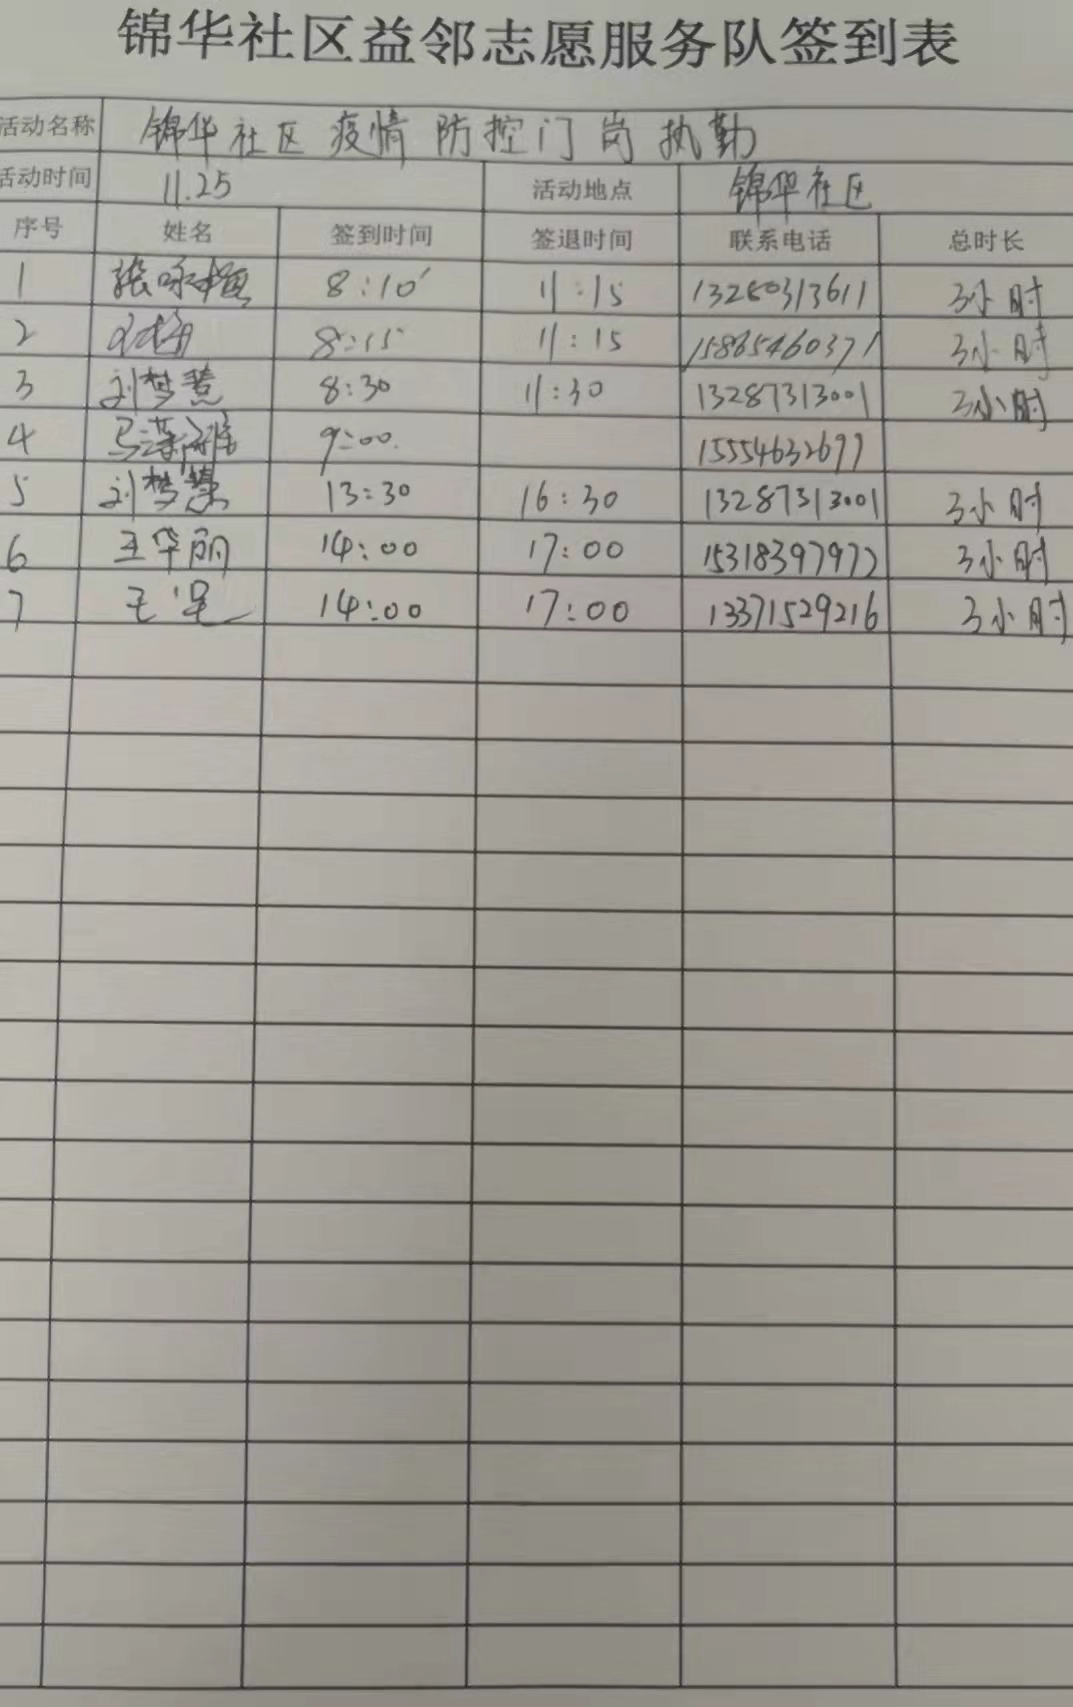 锦华社区益邻志愿服务队签到表
活动名称 锦华社区疫情防控门岗执勤
活动时间 11.25 活动地点 锦华社区
序号 姓名 签到时间 签退时间 联系电话 总时长
1 张咏梅 8:10 11:15 13280313611 3小时
2 8:15 11:15 15865460371 3小时
3 刘梦慧 8:30 11:30 13287313001 3小时
4 9:00. 15554632697
5 刘梦慧 13:30 16:30 13287313001 3小时
6 王华丽 14:00 17:00 15318397972 3小时
7 14:00 17:00 13371529216 3小时